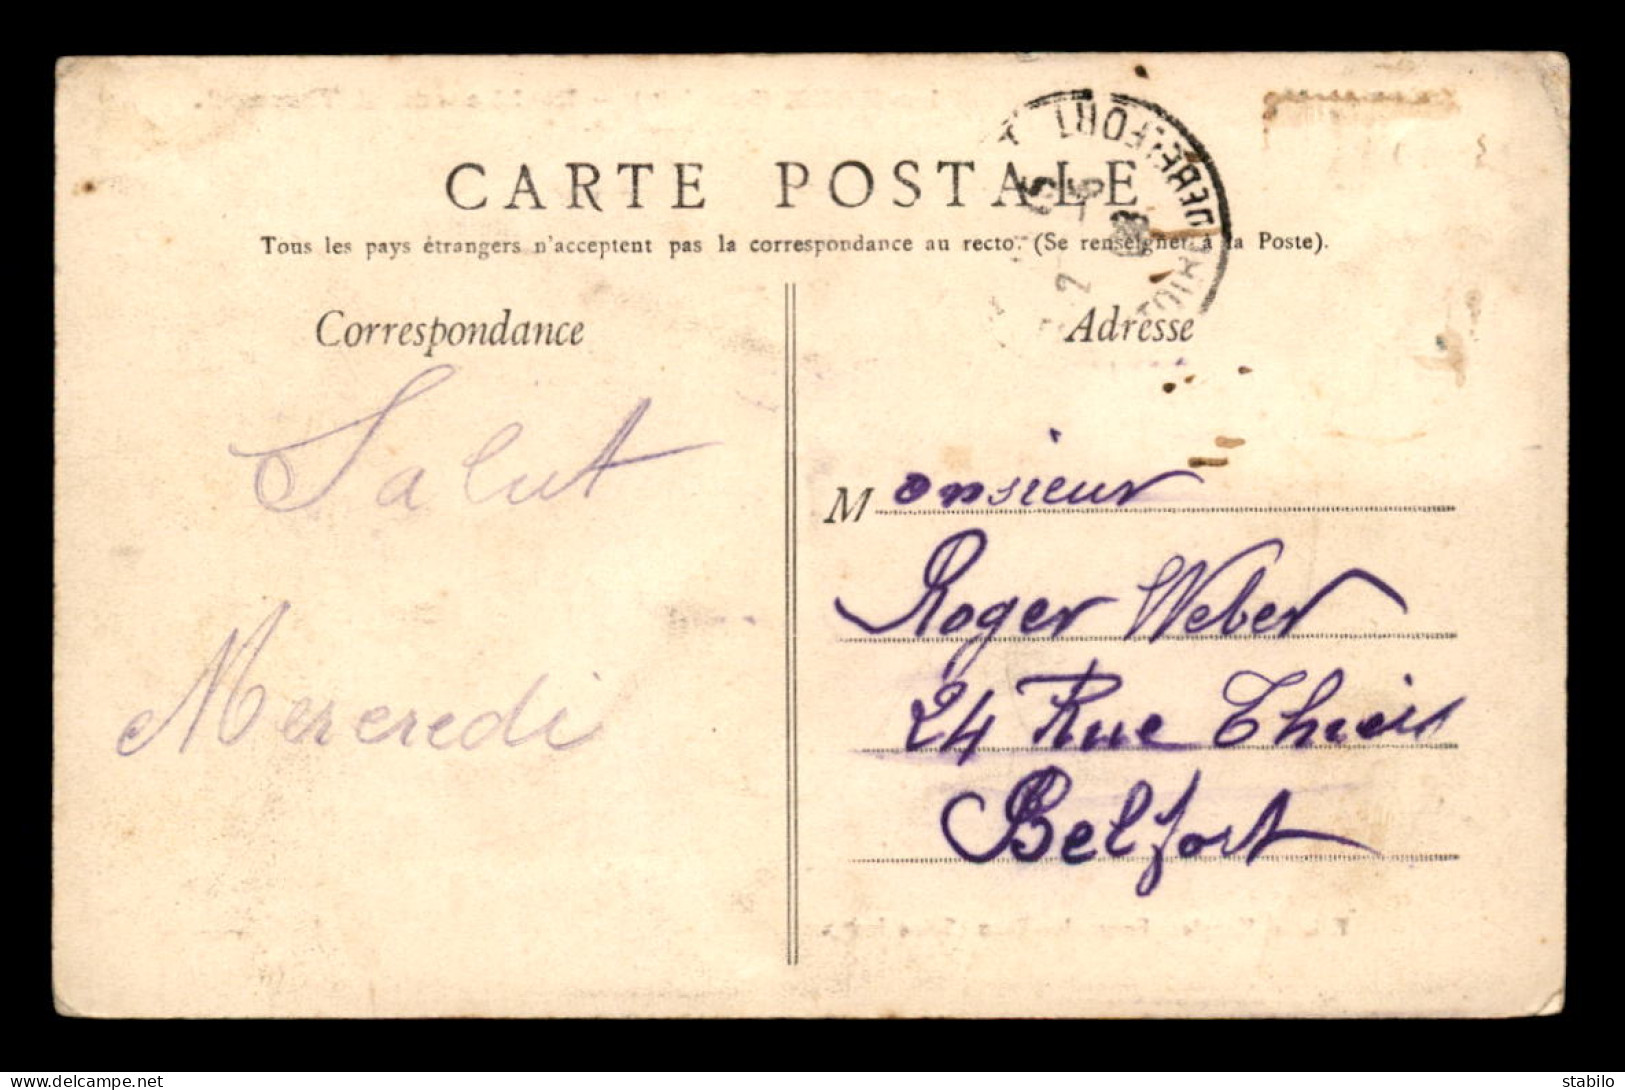 CARTE POSTALE
Tous les pays étrangers n'acceptent pas la correspondance au recto. (Se renseigner à la Poste).
Correspondance
Adresse
Salut
Mercredi
Monsieur
Roger Weber
24 Rue Thiers
Belfort
delcampe.net
stabilo